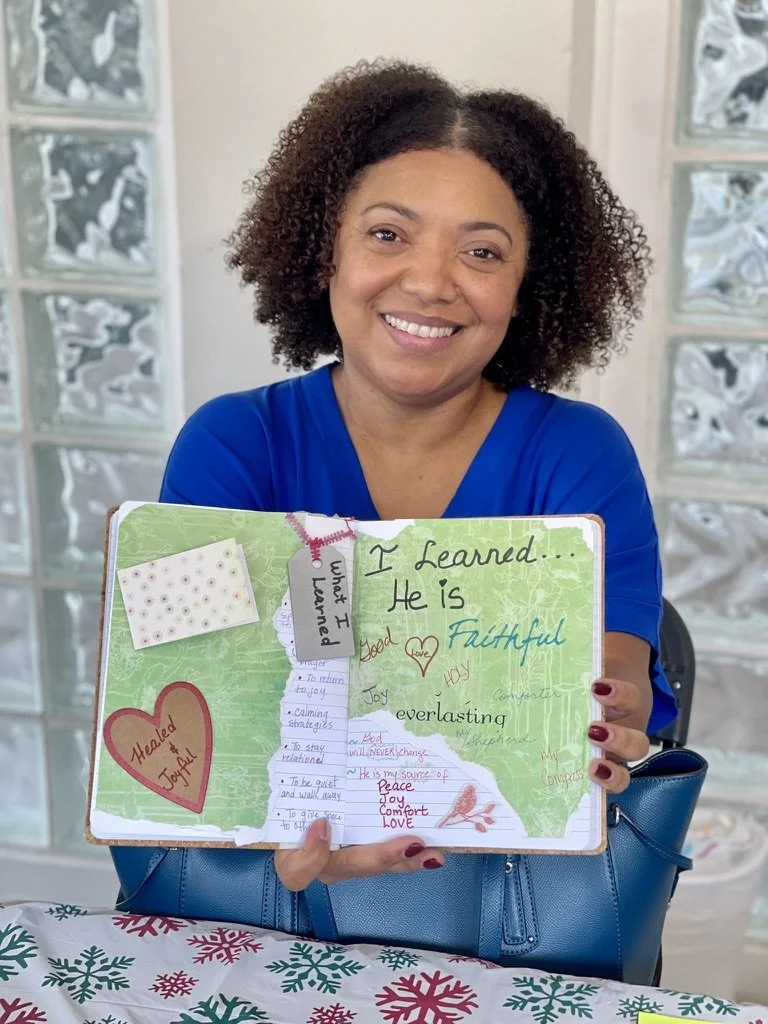 Healed
&
Joyful
What I
Learned
Prayer
• To return
to joy
• Calming
strategies
• To stay
relational
• To be quiet
and walk away
• To give space
to
I Learned...
He is
Good
Love
Faithful
HOLY
Joy
Comforter
everlasting
my Shepherd
~ God
will NEVER change
My
Compass
~ He is my source of
Peace
Joy
Comfort
LOVE